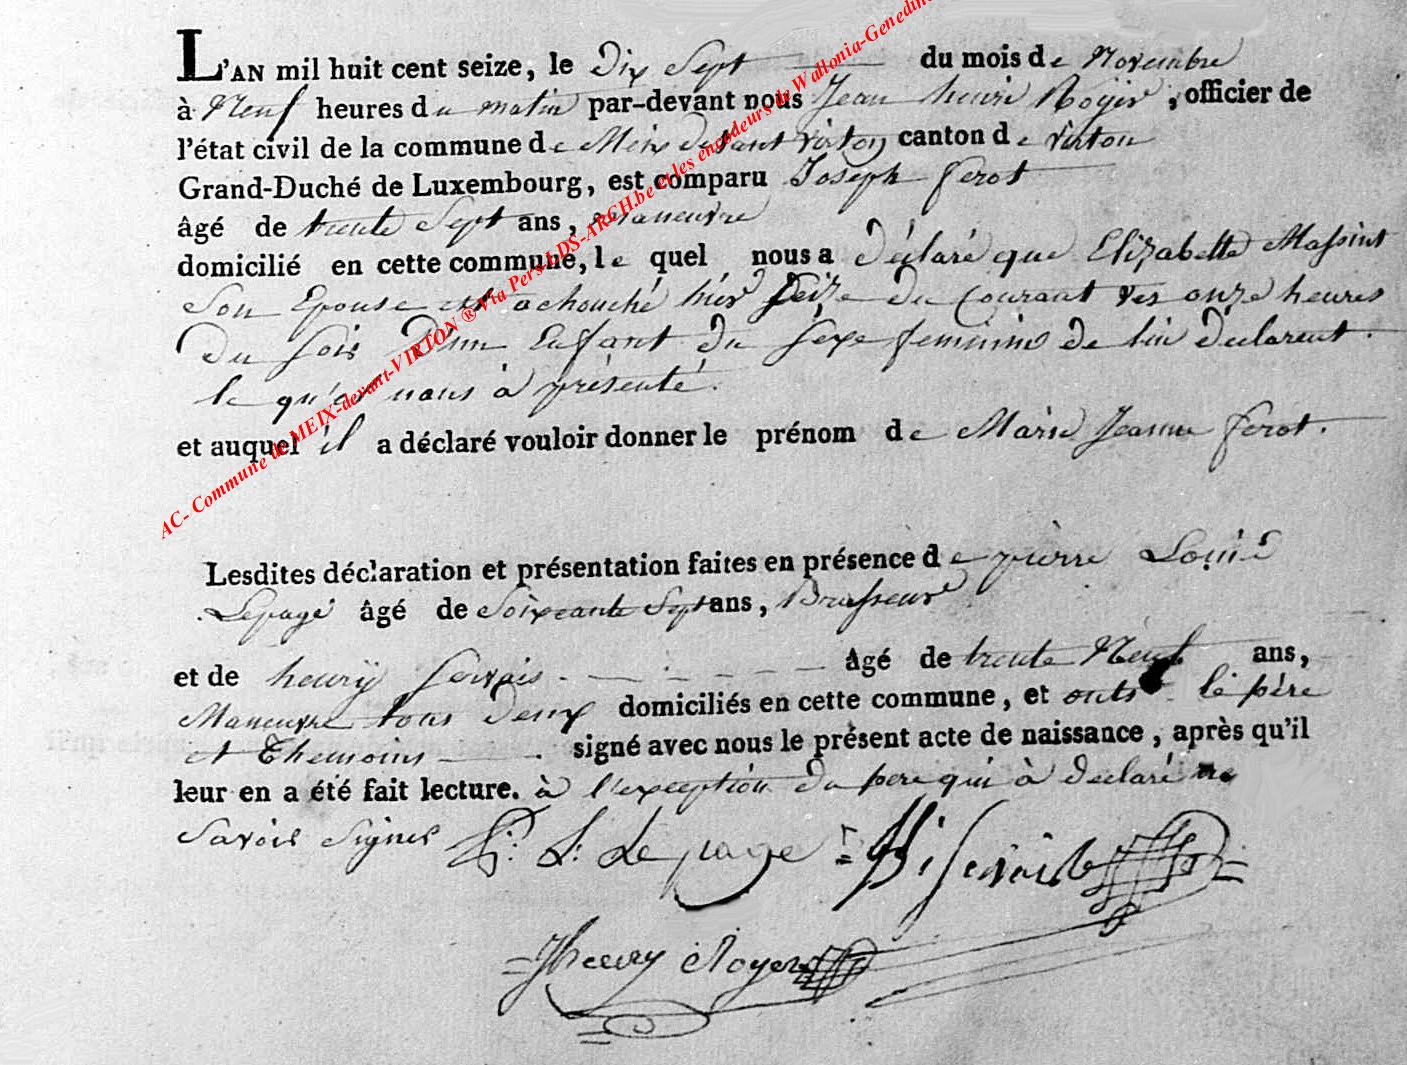 L'AN mil huit cent seize, le Dix Sept du mois de Novembre
à Neuf heures du matin par-devant nous Jean henri Royer, officier de
l'état civil de la commune de Meix devant virton canton de virton
Grand-Duché de Luxembourg, est comparu Joseph ferot
âgé de trente Sept ans, Maneuvre
domicilié en cette commune, le quel nous a déclaré que Elizabette Massint
Son Epouse est achouché hier Seize du Courant ver onze heures
Du soir D'un Enfant du sexe feminin de lui déclarent.
le qu'el nous à présenté.
et auquel il a déclaré vouloir donner le prénom de Marie Jeanne ferot.
Lesdites déclaration et présentation faites en présence de pierre Louis
Lepage âgé de Soixcante Sept ans, Brasseur
et de henrÿ Servais âgé de trente Neuf ans,
Maneuvre tous deux domiciliés en cette commune, et onts le père
et Themoins signé avec nous le présent acte de naissance, après qu'il
leur en a été fait lecture. à l'exception du pere qui à declaré ne
Savoir Signer P: L: Lepage H Servais
JHenry Royer
AC- Commune de MEIX-devant-VIRTON ® Via Pers-LDS-ARCH.be et les encodeurs de Wallonia-Genedin